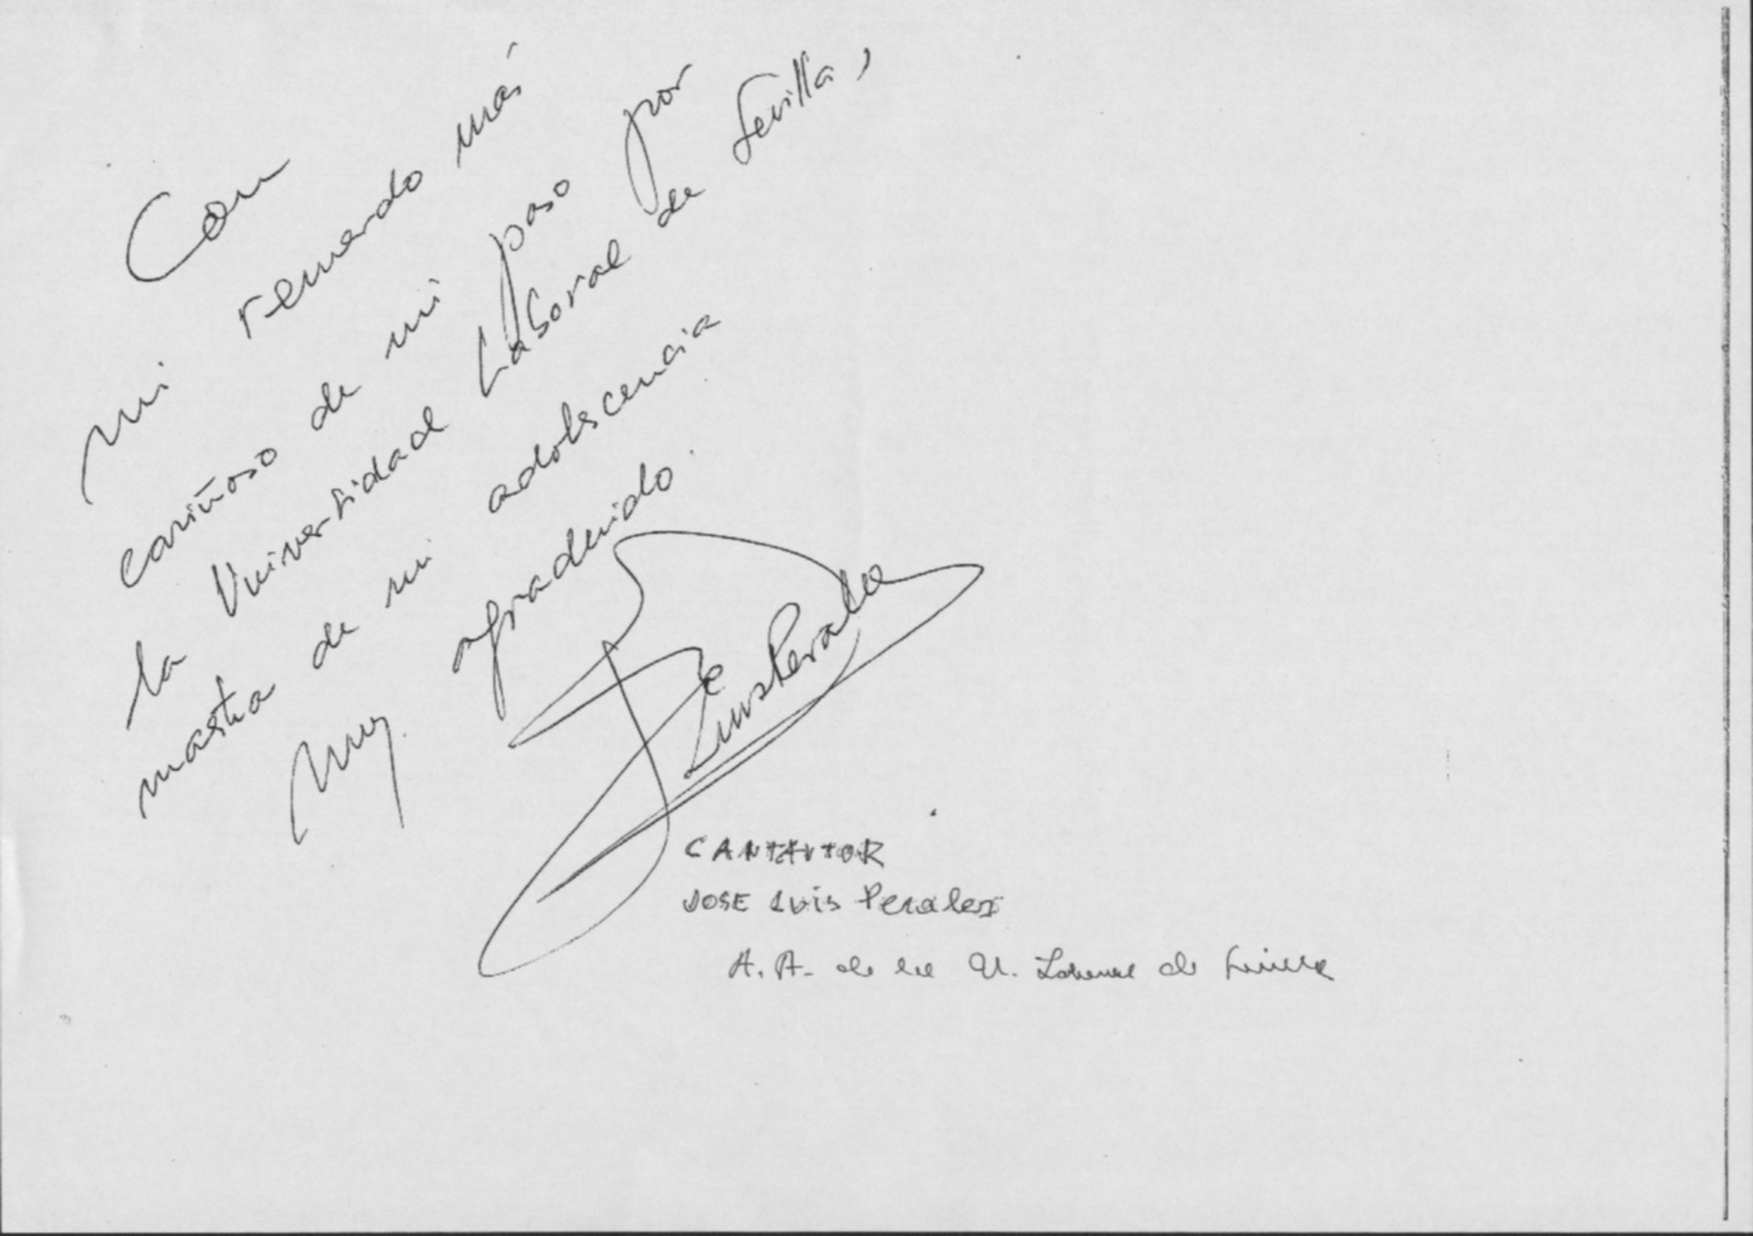 Con
mi recuerdo más
cariñoso de mi paso por
la Universidad Laboral de Sevilla,
maestra de mi adolescencia
Muy agradecido.
J Luis Perales
CANTAUTOR
JOSE LUIS Perales
A. A. de la U. Laboral de Sevilla